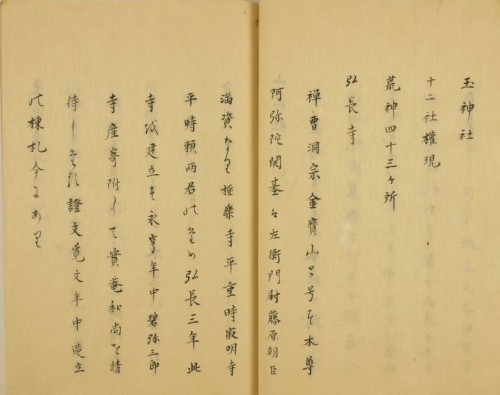 玉神社
十二社権現
荒神四十三ケ所
弘長寺
禅曹洞宗金寳山と号す本尊
阿弥陀開基ハ左衛門尉藤原朝臣
満資なり極楽寺平重時最明寺
平時頼両君のため弘長三年此
寺を建立す永享年中碧弥三郎
寺産寄附して實菴和尚を請
待し 證文寛文年中造立
の棟札今にあり